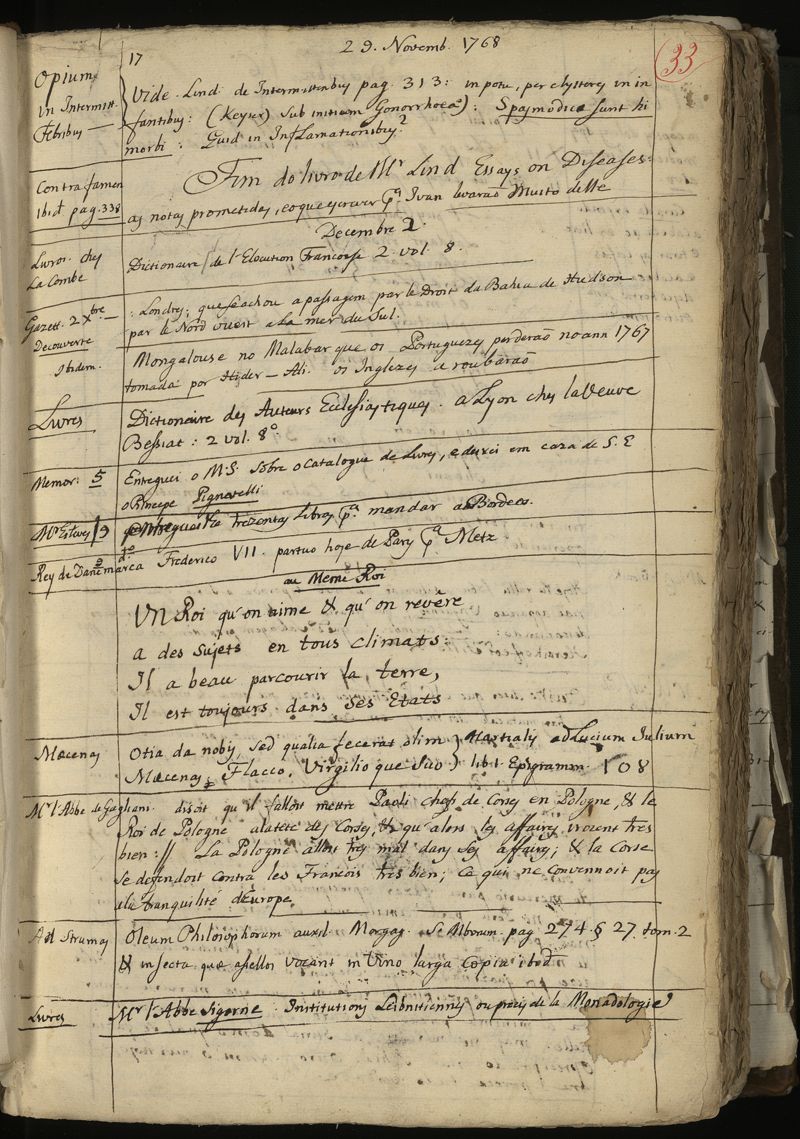 17 29. Novemb. 1768 33
Opium
in Intermitt.
Febribus
Vide. Lind. de Intermittentibus pag. 313: in potu, per clysteres in in
fantibus: (Keyser) sub initium Gonorrhoeae): Spasmodice sunt hi
morbi: Quid in Inflamationibus?
Contra famen
ibid pag. 338
Fim do livro de Mr Lind Essays on Diseases:
as notas prometidas, eoque escrever pa Ivan levaraõ Muito delle
Decembre 2.
Livros. ches
La Combe
Dictionaire de l'Elocution Francoise 2. vol. 8.
Gazett. 2 Xbre
Decouverte
: Londres; que se achou a passagem par le Droit da Bahia de Hudson
par le Nord vuest a La mer du Sul.
Ibidem.
Mongalouse no Malabar que os Portuguezes perderaõ no ann 1767
tomada por Hider-Ali. os Inglezes a roubaraõ
Livres
Dictionaire des Auteurs Ecclesiastiques. a Lyon ches la Veuve
Bessiat: 2 vol. 8o
Memor: 5
Entreguei o M.S. sobre o Catalogue de Livres, e deixei em caza de S. E
o Principe Pignatelli
Mr Esteves 9 entreguei lhe trezentas Libras pa mandar a Bordeos.
Rey de Danemarca Frederico VII. partuo hoje de Pary pa Metz
au Meme Roi
Un Roi qu'on aime & qu'on revère
a des sujets en tous climats:
Il a beau parcourir la terre,
Il est toujours dans ses Etats
Mæcenas
Otia da nobis, sed qualia fecerat olim } Martialis ad Lucium Iulium
Mæcenas Flacco, Virgilio que suo } lib 1 Epigramm. 108
Mr l'Abbe de Gagliani. disoit qu'il falloit mettre Paoli chef de Corses en Pologne, & le
Roi de Pologne a la tete des Corses, & qu'alors les affaires iroient tres
bien: // La Pologne alloit tres mal dans ses affaires; & la Corse
se defendoit contra les Francois tres bien; Ce qui ne Convennoit pas
a la tranquilité d'Europe.
Ad Strumas
Oleum Philosophorum auxil. Morgag. Se Morborum. pag 274. § 27 tom. 2
& insecta quæ asellos vocant in Vino larga Copia ibid
Livres
Mr l'Abbe Sigorne. Institutions Leibnitiennes ou precis de la Monadologie